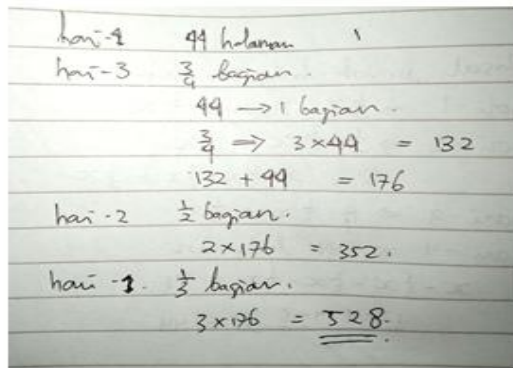 hari-4 44 halaman
hari-3 3/4 bagian.
44 → 1 bagian.
3/4 ⇒ 3×44 = 132
132 + 44 = 176
hari-2 1/2 bagian.
2×176 = 352.
hari-1. 1/3 bagian.
3×176 = 528.